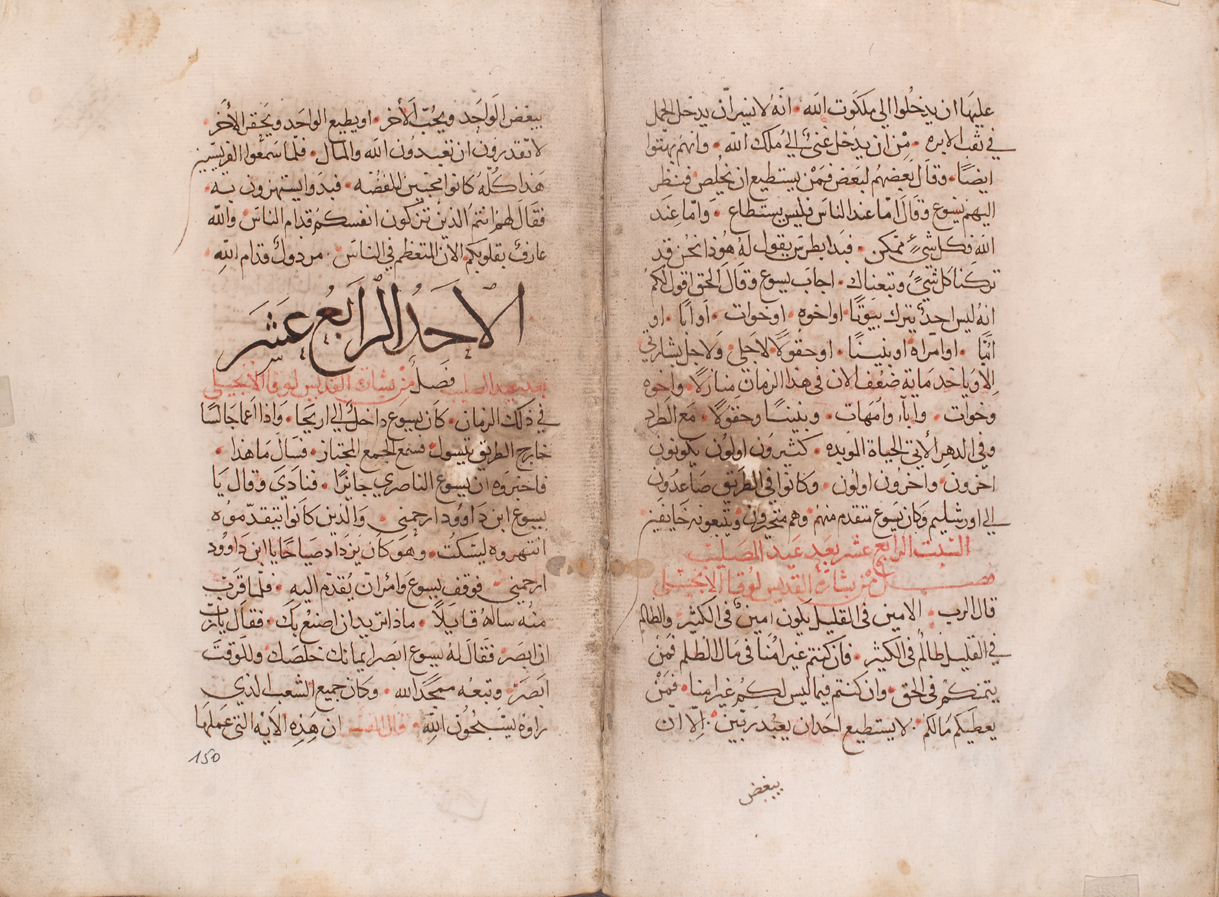 عليها ان يدخلوا الى ملكوت الله • انه لايسر ان يدخل الجمل
في ثقب الابره • مِن ان يدخل غني الى ملك الله • وانهم بهتوا
ايضًا • وقال بعضهم لبعض فمن يستطيع ان يخلص • فنظر
اليهم يسوع وقال امّا عند الناس فليس يستطاع • وامّا عند
الله فكل شيءٍ ممكن • فبدا بطرس يقول له هوذا نحن قد
تركنا كل شيءٍ وتبعناك • اجاب يسوع وقال الحق اقول لكم
انه ليس احد يترك بيوتًا • او اخوه • او خوات • او ابًا • او
امًّا • او امراه او بنينًا • او حقولًا لاجلي • ولاجل بشارتي
الا وياخد مايه ضعف الان في هذا الزمان منازلًا • واخوه
وخوات • وابآ وامهات • وبنينًا وحقولًا • مع الطرد
وفي الدهر الاتي الحياة الموبده • كثيرون اولون يكونون
اخرون • واخرون اولون • وكانوا في الطريق صاعدون
الى اورشليم وكان يسوع متقدم منهم • وهم متحيرون • ويتبعونه خايفين
السبت الرابع عشر بعد عيد الصليب
فصل من بشارة القديس لوقا الانجيلي
قال الرب • الامين في القليل يكون امين في الكثير • والظالم
في القليل ظالم في الكثير • فان كنتم غير امنا في مال الظلم فمن
يتمنكم في الحق • وان كنتم فيما ليس لكم غير امنا • فمن
يعطيكم مالكم • لا يستطيع احد ان يعبد ربين • الا ان
يبغض
يبغض الواحد ويحب الأخر • او يطيع الواحد ويحقر الأخر •
لا تقدرون ان تعبدون الله والمال • فلما سمعوا الفريسيين
هذا كله كانوا محبين للفضه • فبدوا يستهزون به •
فقال لهم انتم الذين تزكون انفسكم قدام الناس • والله
عارف بقلوبكم الان المتعظم في الناس • مرذول قدام الله •
الاحد الرابع عشر
بعد عيد الصليب فصل من بشارة القديس لوقا الانجيلي
في ذلك الزمان • كان يسوع داخل الى اريحا • واذا اعما جالسًا
خارج الطريق يتسول • فسمع الجمع المجتاز • فسال ما هذا •
فاخبروه ان يسوع الناصري جائزًا • فنادى وقال يا
يسوع ابن داوود ارحمني • والذين كانوا يتقدموه
انتهروه ليسكت • وهو كان يزداد صياحًا يا ابن داوود
ارحمني • فوقف يسوع وامر ان يُقدم اليه • فلما قرب
منه ساله قايلًا • ماذا تريد ان اصنع بك • فقال يا رب
ان ابصر • فقال له يسوع ابصر ايمانك خلصك • وللوقت
ابصر • وتبعه ممجدًا لله • وكان جميع الشعب الذي
راوه يسبحون الله • ان هذه الايه التي عملها
150